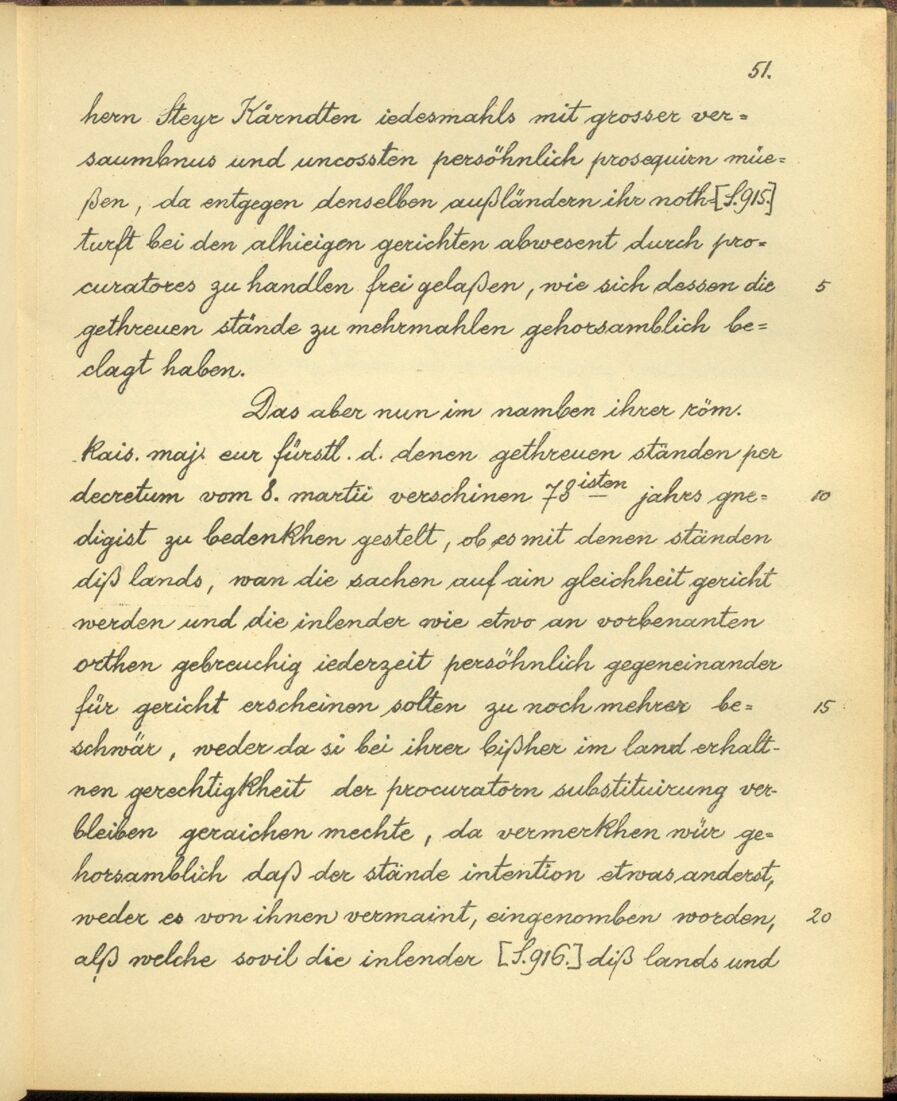 51.
hern Steyr Kärndten iedesmahls mit grosser ver=
saumbnus und uncossten persöhnlich prosequirn müe=
ßen, da entgegen denselben außländern ihr noth=[S.915.]
turft bei den alhieigen gerichten abwesent durch pro=
curatores zu handlen frei gelaßen, wie sich dessen die 5
gethreuen stände zu mehrmahlen gehorsamblich be=
clagt haben.
Das aber nun im namben ihrer röm.
kais. maj. eur fürstl. d. denen gethreuen ständen per
decretum vom 8. martii verschinen 78isten jahrs gne= 10
digist zu bedenkhen gestelt, ob es mit denen ständen
diß lands, wan die sachen auf ain gleichheit gericht
werden und die inlender wie etwo an vorbenanten
orthen gebreuchig iederzeit persöhnlich gegeneinander
für gericht erscheinen solten zu noch mehrer be= 15
schwär, weder da si bei ihrer bißher im land erhalt-
nen gerechtigkheit der procuratorn substituirung ver-
bleiben geraichen mechte, da vermerkhen wür ge=
horsamblich daß der stände intention etwas anderst,
weder es von ihnen vermaint, eingenomben worden, 20
alß welche sovil die inlender [S.916.] diß lands und